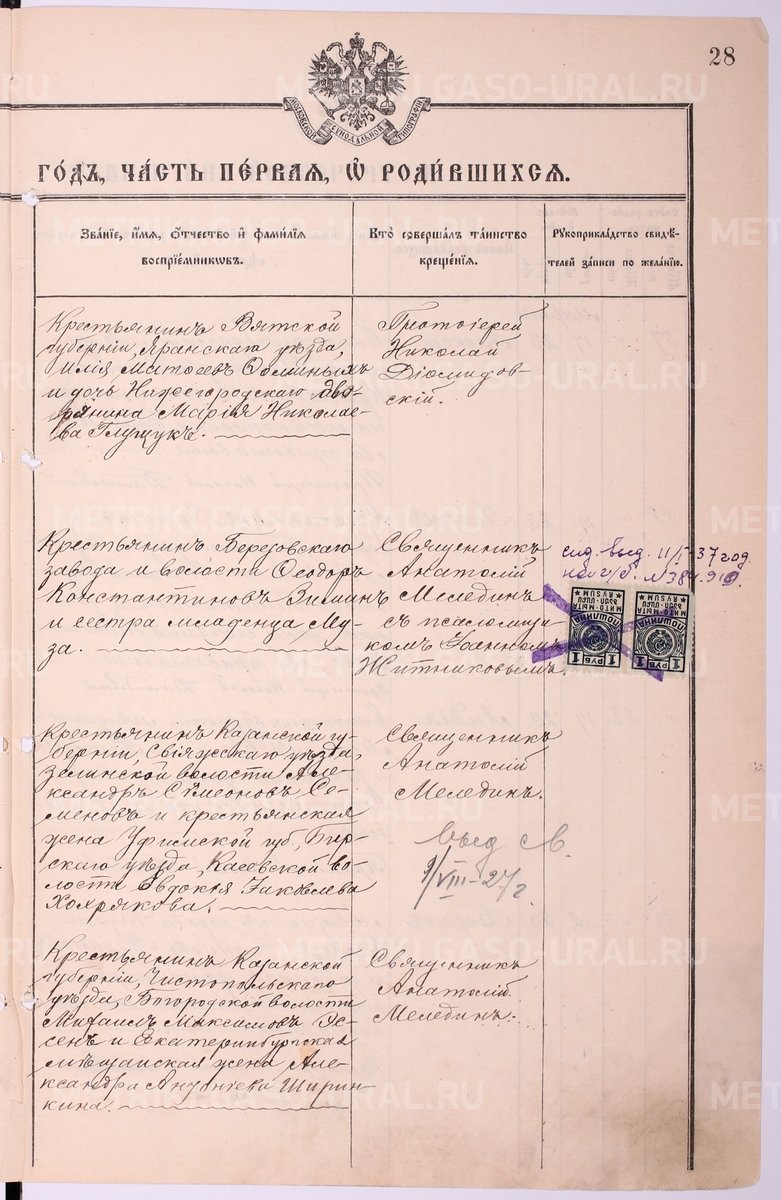 28
МОСКОВСКОЙ СѴНОДАЛЬНОЙ ТИПОГРАФІИ
ГО́ДЪ, ЧА́СТЬ ПЕ́РВАЯ, Ѽ РОДИ́ВШИХСЯ.
Зва́нїе, и҆́мѧ, ѻ҆́тчество и҆ фами́лїѧ
воспрїе́мниковъ.
Кто̀ соверша́лъ та́инство
креще́нїѧ.
Рꙋкоприкла́дство свидѣ́-
телей за́писи по жела́нїю.
Крестьянинъ Вятской
губерніи, Яранскаго уѣзда,
Илія Матѳеевъ Ѳоминыхъ
и дочь Нижегородскаго дво-
рянина Марія Николае-
ва Глущукъ.
Протоіерей
Николай
Діомидов-
скій.
Крестьянинъ Березовскаго
завода и волости Ѳеодоръ
Константиновъ Зиминъ
и сестра младенца Му-
за.
Священникъ
Анатолій
Мелединъ
съ псаломщи-
комъ Іоанномъ
Житниковымъ.
выд. 11/I-37 год.
№ 384.910
ПОШЛИНА
1 РУБ 1
ПОШЛИНА
1 1
Крестьянинъ Казанской гу-
берніи, Свіяжскаго уѣзда,
волости Але-
ксандръ Сѵмеоновъ Се-
меновъ и крестьянская
жена Уфимской губ., Бир-
скаго уѣзда, Касевской во-
лости Евдокія Іаковлева
Хохрякова.
Священникъ
Анатолій
Мелединъ.
выд св.
9/VIII-27г.
Крестьянинъ Казанской
губерніи, Чистопольскаго
уѣзда, волости
Михаилъ Максимовъ Эс-
сенъ и Екатеринбургская
мѣщанская жена Але-
ксандра Ширин-
кина.
Священникъ
Анатолій
Мелединъ.
METRIKI.GASO-URAL.RU